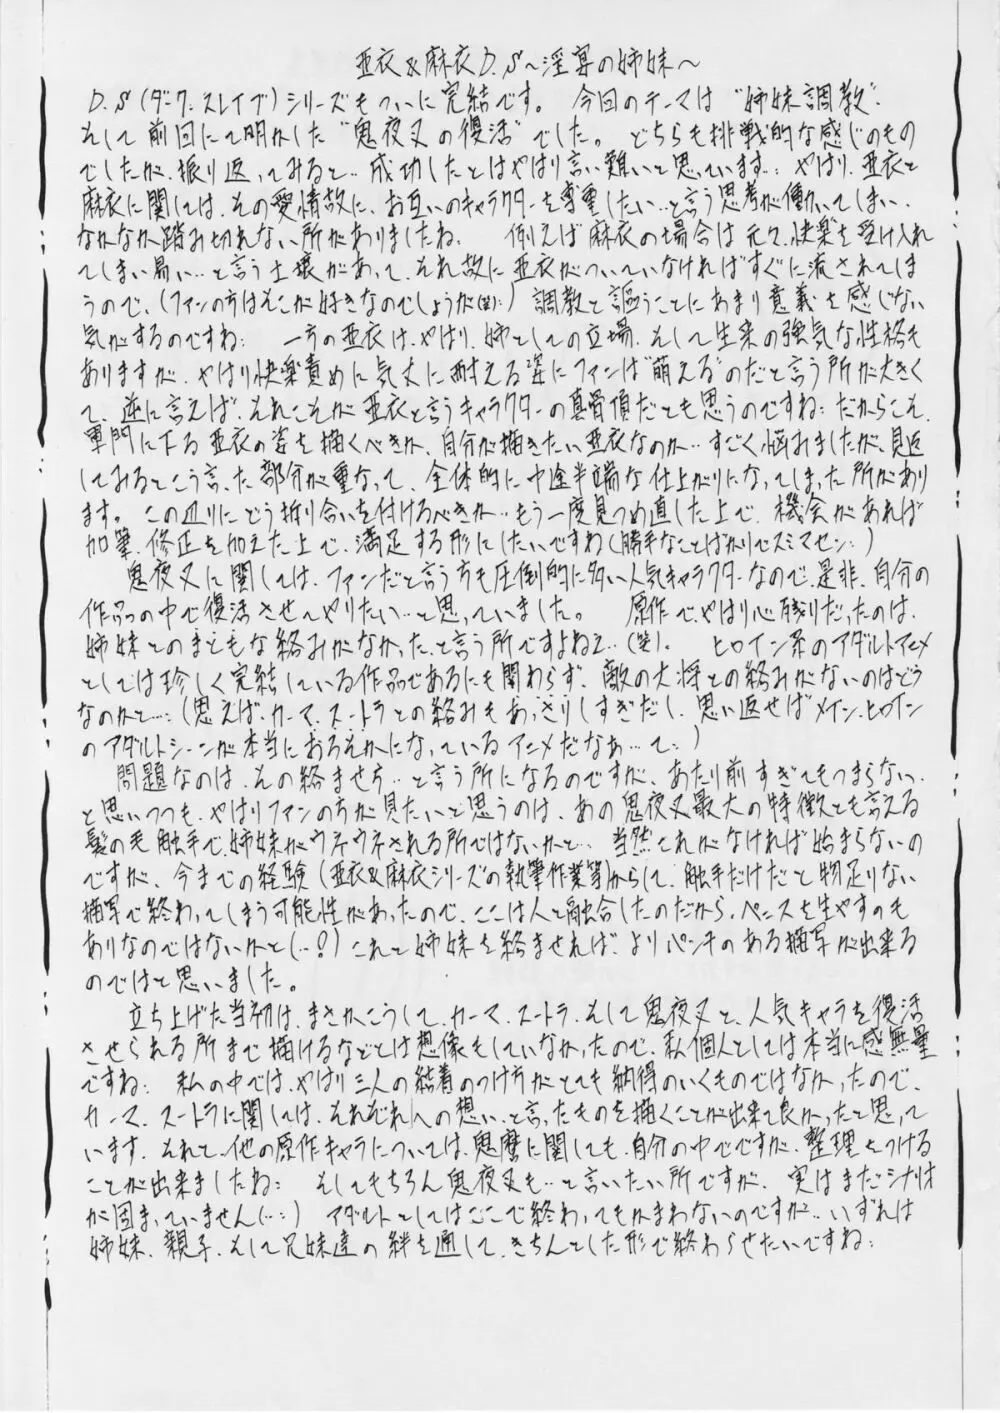 亜衣&麻衣D.S～淫宴の姉妹～
D.S(ダーク.スレイブ)シリーズもついに完結です。 今回のテーマは"姉妹調教".
そして前回にて明かした"鬼夜叉の復活"でした。 どちらも挑戦的な感じのもの
でしたが、振り返ってみると… 成功したとはやはり言い難いと思っています… やはり、亜衣と
麻衣に関しては、その愛情故に、お互いのキャラクターを尊重したい…と言う思考が働いてしまい、
なかなか踏み切れない所がありましたね。 例えば麻衣の場合は元々、快楽を受け入れ
てしまい易い…と言う土壌があって、それ故に亜衣がついていなければすぐに流されてしま
うので、(ファンの方はそこが好きなのでしょうが…)調教と謳うことにあまり意義を感じない
気がするのですね… 一方の亜衣は、やはり、姉としての立場、そして生来の強気な性格も
ありますが、やはり快楽責めに気丈に耐える姿にファンは"萌える"のだと言う所が大きく
て、逆に言えば、それこそが亜衣と言うキャラクターの真骨頂だとも思うのですね… だからこそ、
軍門に下る亜衣の姿を描くべきか、自分が描きたい亜衣なのか…すごく悩みましたが、見返
してみるとこう言った部分が重なって、全体的に中途半端な仕上がりになってしまった所があり
ます。 この辺りにどう折り合いを付けるべきか…もう一度見つめ直した上で、機会があれば
加筆、修正を加えた上で、満足する形にしたいですね(勝手なことばかりでスミマセン…)
鬼夜叉に関しては、ファンだと言う方も圧倒的に多い人気キャラクターなので、是非、自分の
作品の中で復活させてやりたい…と思っていました。 原作でやはり心残りだったのは、
姉妹とのまともな絡みがなかったと言う所ですよねえ…(笑)。 ヒロイン系のアダルトアニメ
としては珍しく完結している作品であるにも関わらず、敵の大将との絡みがないのはどう
なのかと…(思えば、カーマ、スートラとの絡みもあっさりしすぎだし、思い返せばメイン、ヒロイン
のアダルトシーンが本当におろそかになっているアニメだなあ…て…)
問題なのは、その絡ませ方…と言う所になるのですが、あたり前すぎてもつまらない、
と思いつつも、やはりファンの方が見たいと思うのは、あの鬼夜叉最大の特徴とも言える
髪の毛触手で、姉妹がウネウネされる所ではないかと… 当然これがなければ始まらないの
ですが、今までの経験(亜衣&麻衣シリーズの執筆作業等)からして、触手だけだと物足りない
描写で終わってしまう可能性があったので、ここは人と融合したのだから、ペニスを生やすのも
ありなのではないかと(…?)これと姉妹を絡ませれば、よりパンチのある描写が出来る
のではと思いました。
立ち上げた当初は、まさかこうして、カーマ、スートラ、そして鬼夜叉と、人気キャラを復活
させられる所まで描けるなどとは想像もしていなかったので、私個人としては本当に感無量
ですね… 私の中では、やはり三人の結着のつけ方がとても納得のいくものではなかったので、
カーマ、スートラに関しては、それぞれへの想い、と言ったものを描くことが出来て良かったと思って
います。それと、他の原作キャラについては、鬼麿に関しても、自分の中でですが、整理をつける
ことが出来ましたね… そしてもちろん鬼夜叉も…と言いたい所ですが、実はまだシナリオ
が固まっていません(…) アダルトとしてはここで終わってもかまわないのですが…いずれは
姉妹、親子、そして兄妹達の絆を通して、きちんとした形で終わらせたいですね…